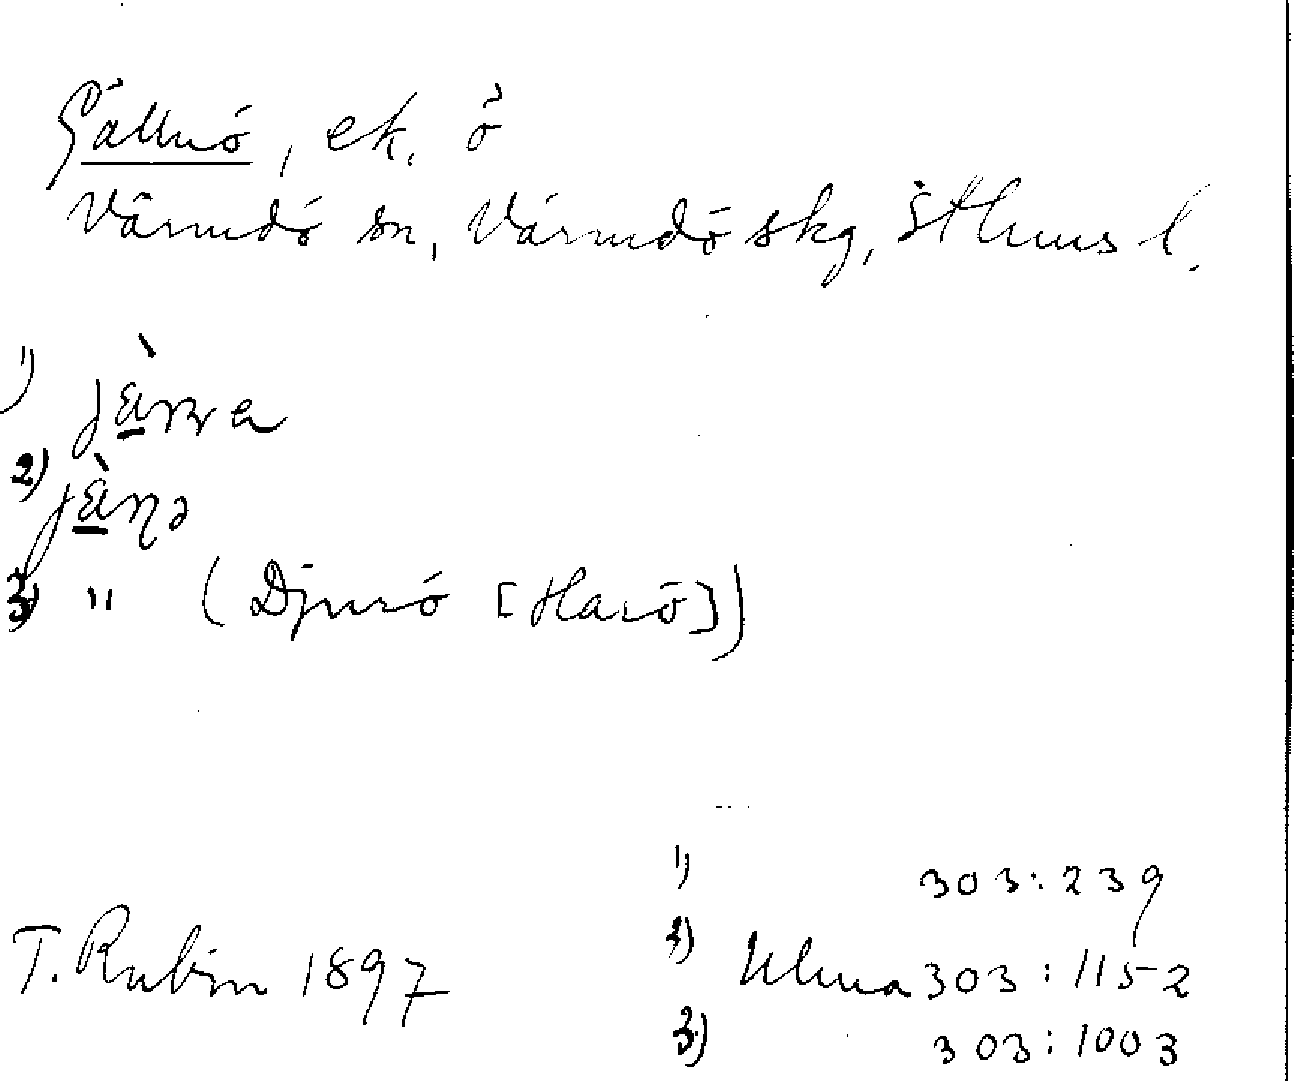 Gällnö, ek. ö
Värmdö sn, Värmdö skg, Sthlms l.
1)
2)
3) " (Djurö [Harö])
1) 303:239
T. Rubin 1897
2) Ulma 303:1152
3) 303:1003